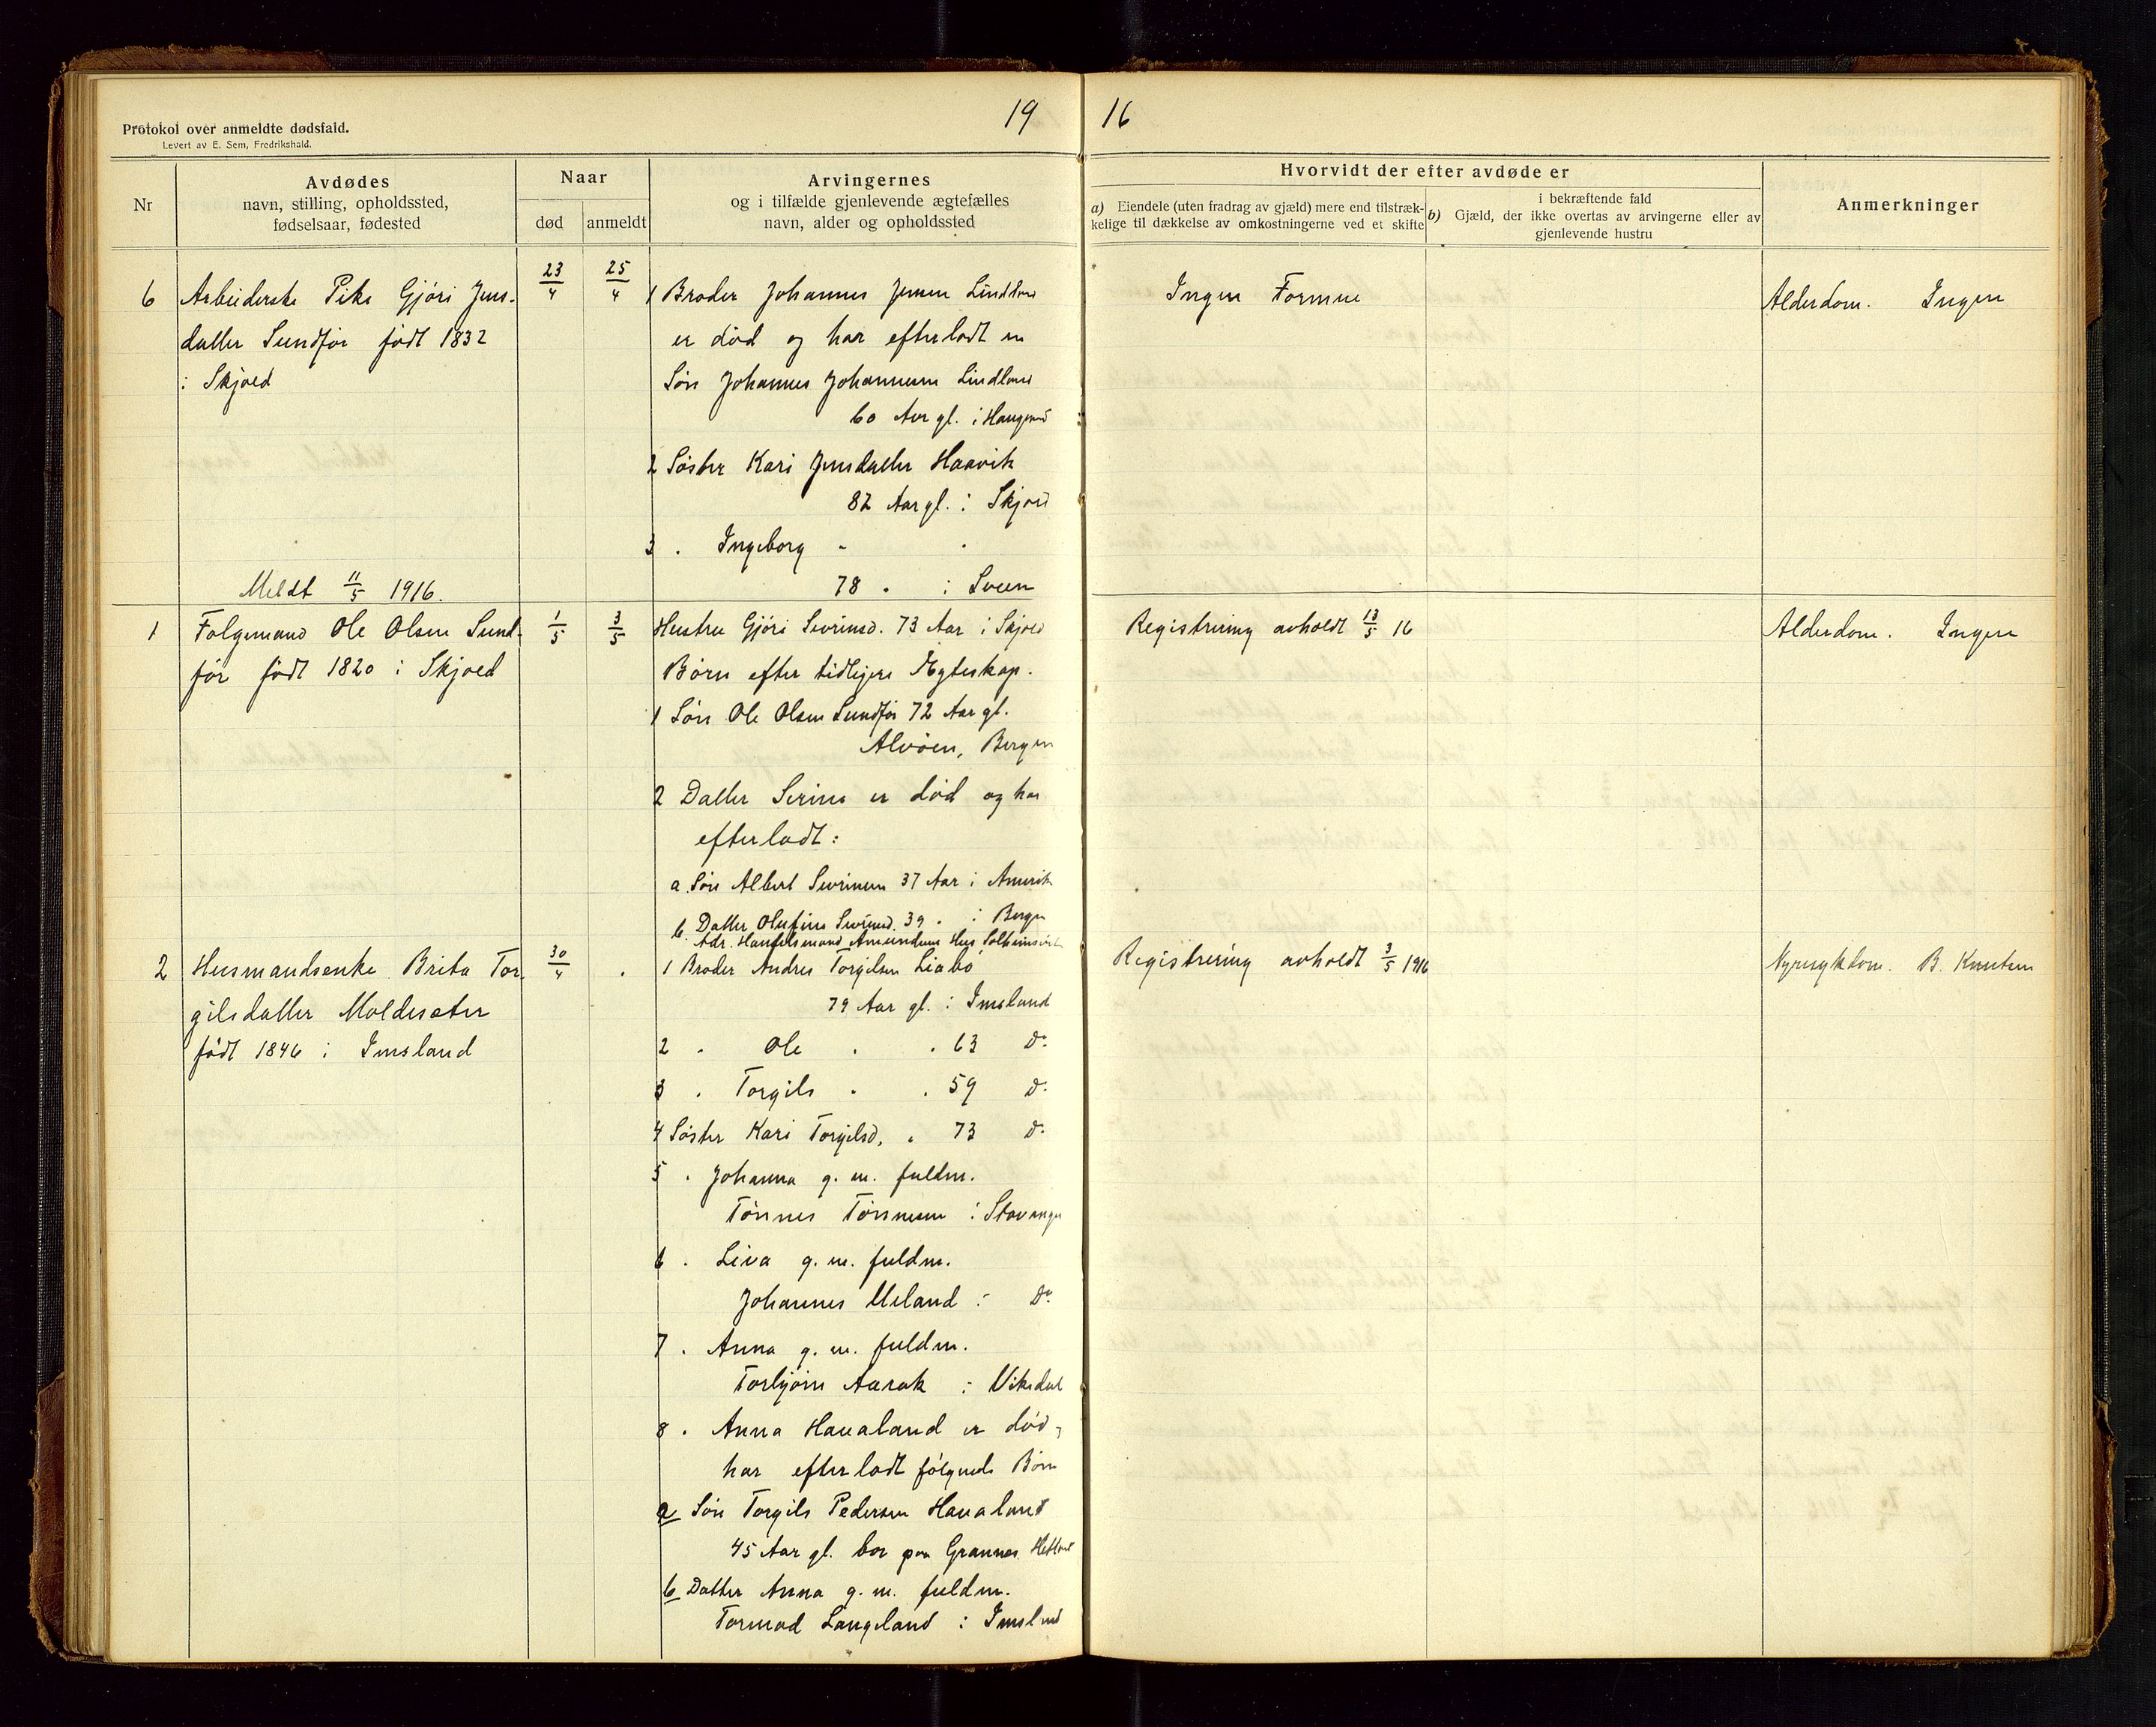 19 16
Protokol over anmeldte dødsfald.
Levert av E. Sem, Fredrikshald.
Nr
Avdødes
navn, stilling, opholdssted,
fødselsaar, fødested
Naar
død
anmeldt
Arvingernes
og i tilfælde gjenlevende ægtefælles
navn, alder og opholdssted
Hvorvidt der efter avdøde er
a) Eiendele (uten fradrag av gjæld) mere end tilstræk-
kelige til dækkelse av omkostningerne ved et skifte
i bekræftende fald
b) Gjæld, der ikke overtas av arvingerne eller av
gjenlevende hustru
Anmerkninger
6
Arbeiderske Pike Gjøri Jens-
datter Sundfør født 1832
i Skjold
23/4
25/4
1 Broder Johannes Jensen Lindland
er død og har efterladt en
Søn Johannes Johannesen Lindland
60 Aar gl. i Haugesund
2 Søster Kari Jensdatter Haavik
82 Aar gl. i Skjold
3 " Ingeborg " "
78 " i Sveen
Ingen Formue
Alderdom. Ingen
Meldt 11/5 1916.
1
Følgemand Ole Olsen Sund-
før født 1820 i Skjold
1/5
3/5
Hustru Gjøri Sevrinsd. 73 Aar i Skjold
Børn efter tidligere Ægteskap.
1 Søn Ole Olsen Sundfør 72 Aar gl.
Alvøen, Bergen
2 Datter Serina er død og har
efterladt:
a. Søn Albert Sevrinsen 37 Aar i Amerika
b. Datter Olufine Sevrinsd. 39 " i Bergen
Adr. Handelsmand Amundsens Hus, Solheimsvik
Registrering avholdt 13/5 16
Alderdom. Ingen
2
Husmandsenke Brita Tor-
gilsdatter Moldesæter
født 1846 i Imsland
30/4
"
1 Broder Andres Torgilsen Liabø
79 Aar gl. i Imsland
2 " Ole " " 63 Do
3 " Torgils " " 59 Do
4 Søster Kari Torgilsd. " 73 Do
5 " Johanna g. m. fuldm.
Tønnes Tønnesen i Stavanger
6 " Liva g. m. fuldm.
Johannes Meland i Do
7 " Anna g. m. fuldm.
Torbjørn Aarak i Vikedal
8 " Anna Haualand er død,
har efterladt følgende Børn
a Søn Torgils Pedersen Haualand
45 Aar gl. bor paa Grannes Hetland
b Datter Anna g. m. fuldm.
Tormod Langeland i Imsland
Registrering avholdt 3/5 1916
Nyresykdom. B. Knutsen